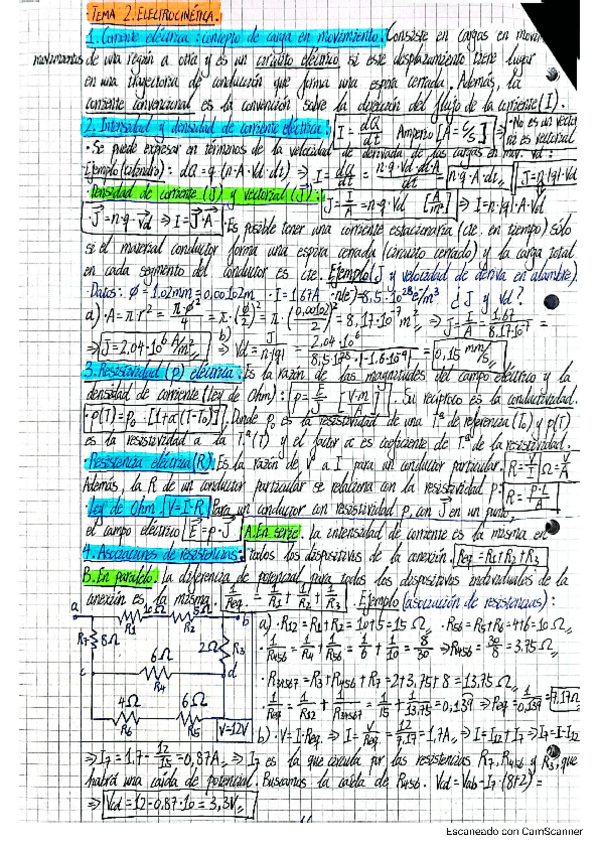 TEMA 2. ELECTROCINÉTICA.
1. Corriente eléctrica: concepto de carga en movimiento. Consiste en cargas en movi
movimientos de una región a otra y es un circuito eléctrico si este desplazamiento tiene lugar
en una trayectoria de conducción que forma una espira cerrada. Además, la
corriente convencional es la convención sobre la dirección del flujo de la corriente (I).
2. Intensidad y densidad de corriente eléctrica: I = dQ/dt Amperio [A = C/s] ⇒ No es un vector
es vectorial
· Se puede expresar en términos de la velocidad de derivada de las cargas en mov. vd:
· Ejemplo (cilindro): dQ = q (n·A·Vd·dt) ⇒ I = dQ/dt = n·q·Vd·dt·A/dt = n·q·A·dt, J = n·|q|·Vd
· Densidad de corriente (J) y vectorial (J⃗): J = I/A = n·q·Vd [A/m²] ⇒ I = n·|q|·A·Vd
· J⃗ = n·q·vd⃗ ⇒ I = J⃗·A⃗ · Es posible tener una corriente estacionaria (cte. en tiempo) sólo
si el material conductor forma una espira cerrada (circuito cerrado) y la carga total
en cada segmento del conductor es cte. Ejemplo (J y velocidad de deriva en alambre).
· Datos: ϕ = 1.02mm = 0,00102m · I = 1.67A · n(e⁻) = 8,5·10²⁸ e⁻/m³ ¿J y vd?
a) · A = π·r² = π·ϕ²/4 = π·(ϕ/2)² = π·(0,00102/2)² = 8,17·10⁻⁷ m² ⇒ J = I/A = 1.67/8.17·10⁻⁷ =
⇒ J = 2.04·10⁶ A/m² b) ⇒ Vd = J/n·|q| = 2.04·10⁶/8,5·10²⁸·|-1,6·10⁻¹⁹| = 0,15 mm/s
3. Resistividad (ρ) eléctrica: Es la razón de las magnitudes del campo eléctrico y la
densidad de corriente (Ley de Ohm): ρ = E/J [V·m/A]. Su recíproco es la conductividad.
· ρ(T) = ρ₀·[1+α(T-T₀)]. Donde ρ₀ es la resistividad de una Tª de referencia (T₀) y ρ(T)
es la resistividad a la Tª(T) y el factor α es coeficiente de Tª de la resistividad.
· Resistencia eléctrica (R): Es la razón de V a I para un conductor particular. R = V/I Ω = V/A
Además, la R de un conductor particular se relaciona con la resistividad ρ: R = ρ·L/A
· Ley de Ohm [V=I·R] Para un conductor con resistividad ρ, con J en un punto,
el campo eléctrico E⃗ = ρ·J⃗ A. En serie. La intensidad de corriente es la misma en
4. Asociaciones de resistencias: todos los dispositivos de la conexión. Req = R₁+R₂+R₃
B. En paralelo. La diferencia de potencial para todos los dispositivos individuales de la
conexión es la misma. 1/Req = 1/R₁ + 1/R₂ + 1/R₃ · Ejemplo (asociación de resistencias):
a 10Ω R₁ 5Ω R₂ b a) · R₁₂ = R₁+R₂ = 10+5 = 15Ω · R₅₆ = R₅+R₆ = 4+6 = 10Ω
R₇ 8Ω 2Ω R₃ · 1/R₄₅₆ = 1/R₄ + 1/R₅₆ = 1/6 + 1/10 = 8/30 ⇒ R₄₅₆ = 30/8 = 3.75Ω
c 6Ω R₄ d · R₃₄₅₆₇ = R₃+R₄₅₆+R₇ = 2+3,75+8 = 13.75Ω
4Ω R₆ 6Ω R₅ · 1/Req = 1/R₁₂ + 1/R₃₄₅₆₇ = 1/15 + 1/13.75 = 0,139 ⇒ Req = 1/0,139 = 7.17Ω
V=12V b) · V = I·Req ⇒ I = V/Req = 12/7.17 = 1,7A ⇒ I = I₁₂+I₇ ⇒ I₇ = I-I₁₂
⇒ I₇ = 1.7 - 12/15 = 0,87A ⇒ I₇ es la que circula por las resistencias R₇, R₄₅₆ y R₃, que
habrá una caída de potencial. Buscamos la caída de R₄₅₆. Vcd = Vab - I₇·(8+2) =
⇒ Vcd = 12-0.87·10 = 3,3V
Escaneado con CamScanner